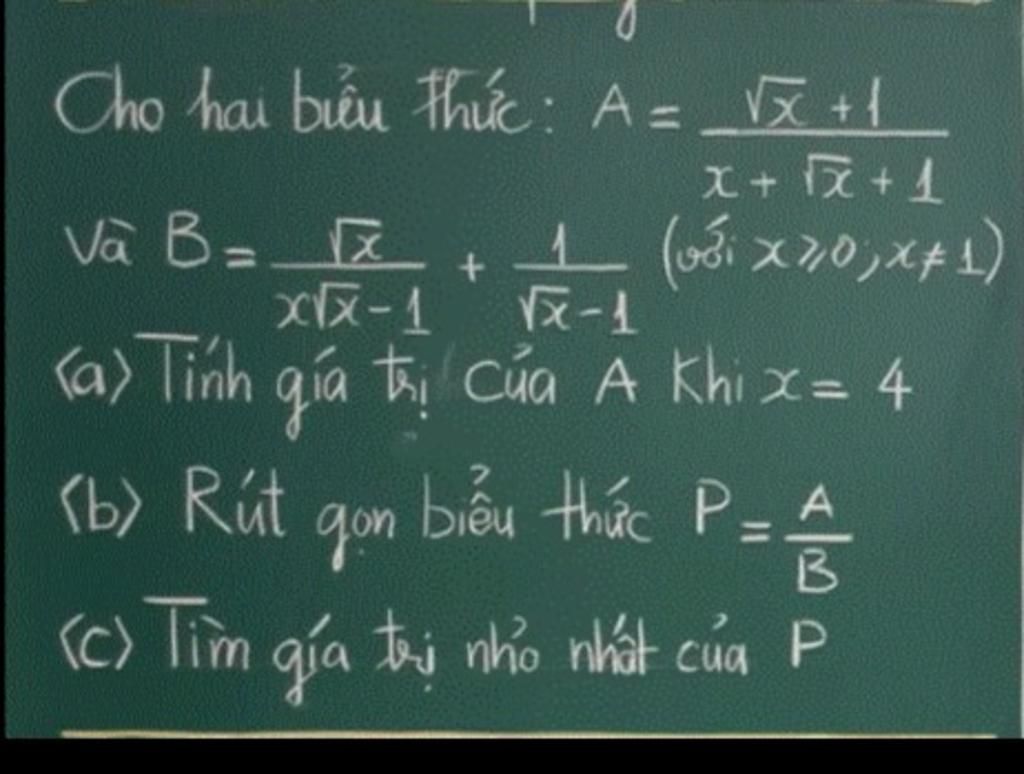 Cho hai biểu thức: A = \frac{\sqrt{x} + 1}{x + \sqrt{x} + 1}
Và B = \frac{\sqrt{x}}{x\sqrt{x} - 1} + \frac{1}{\sqrt{x} - 1} (với x ⩾ 0; x ≠ 1)
(a) Tính gía trị của A Khi x = 4
(b) Rút gọn biểu thức P = \frac{A}{B}
(c) Tìm gía trị nhỏ nhất của P